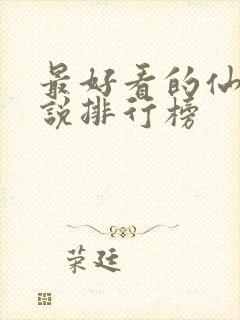 最好看的仙
说排行榜
荣廷